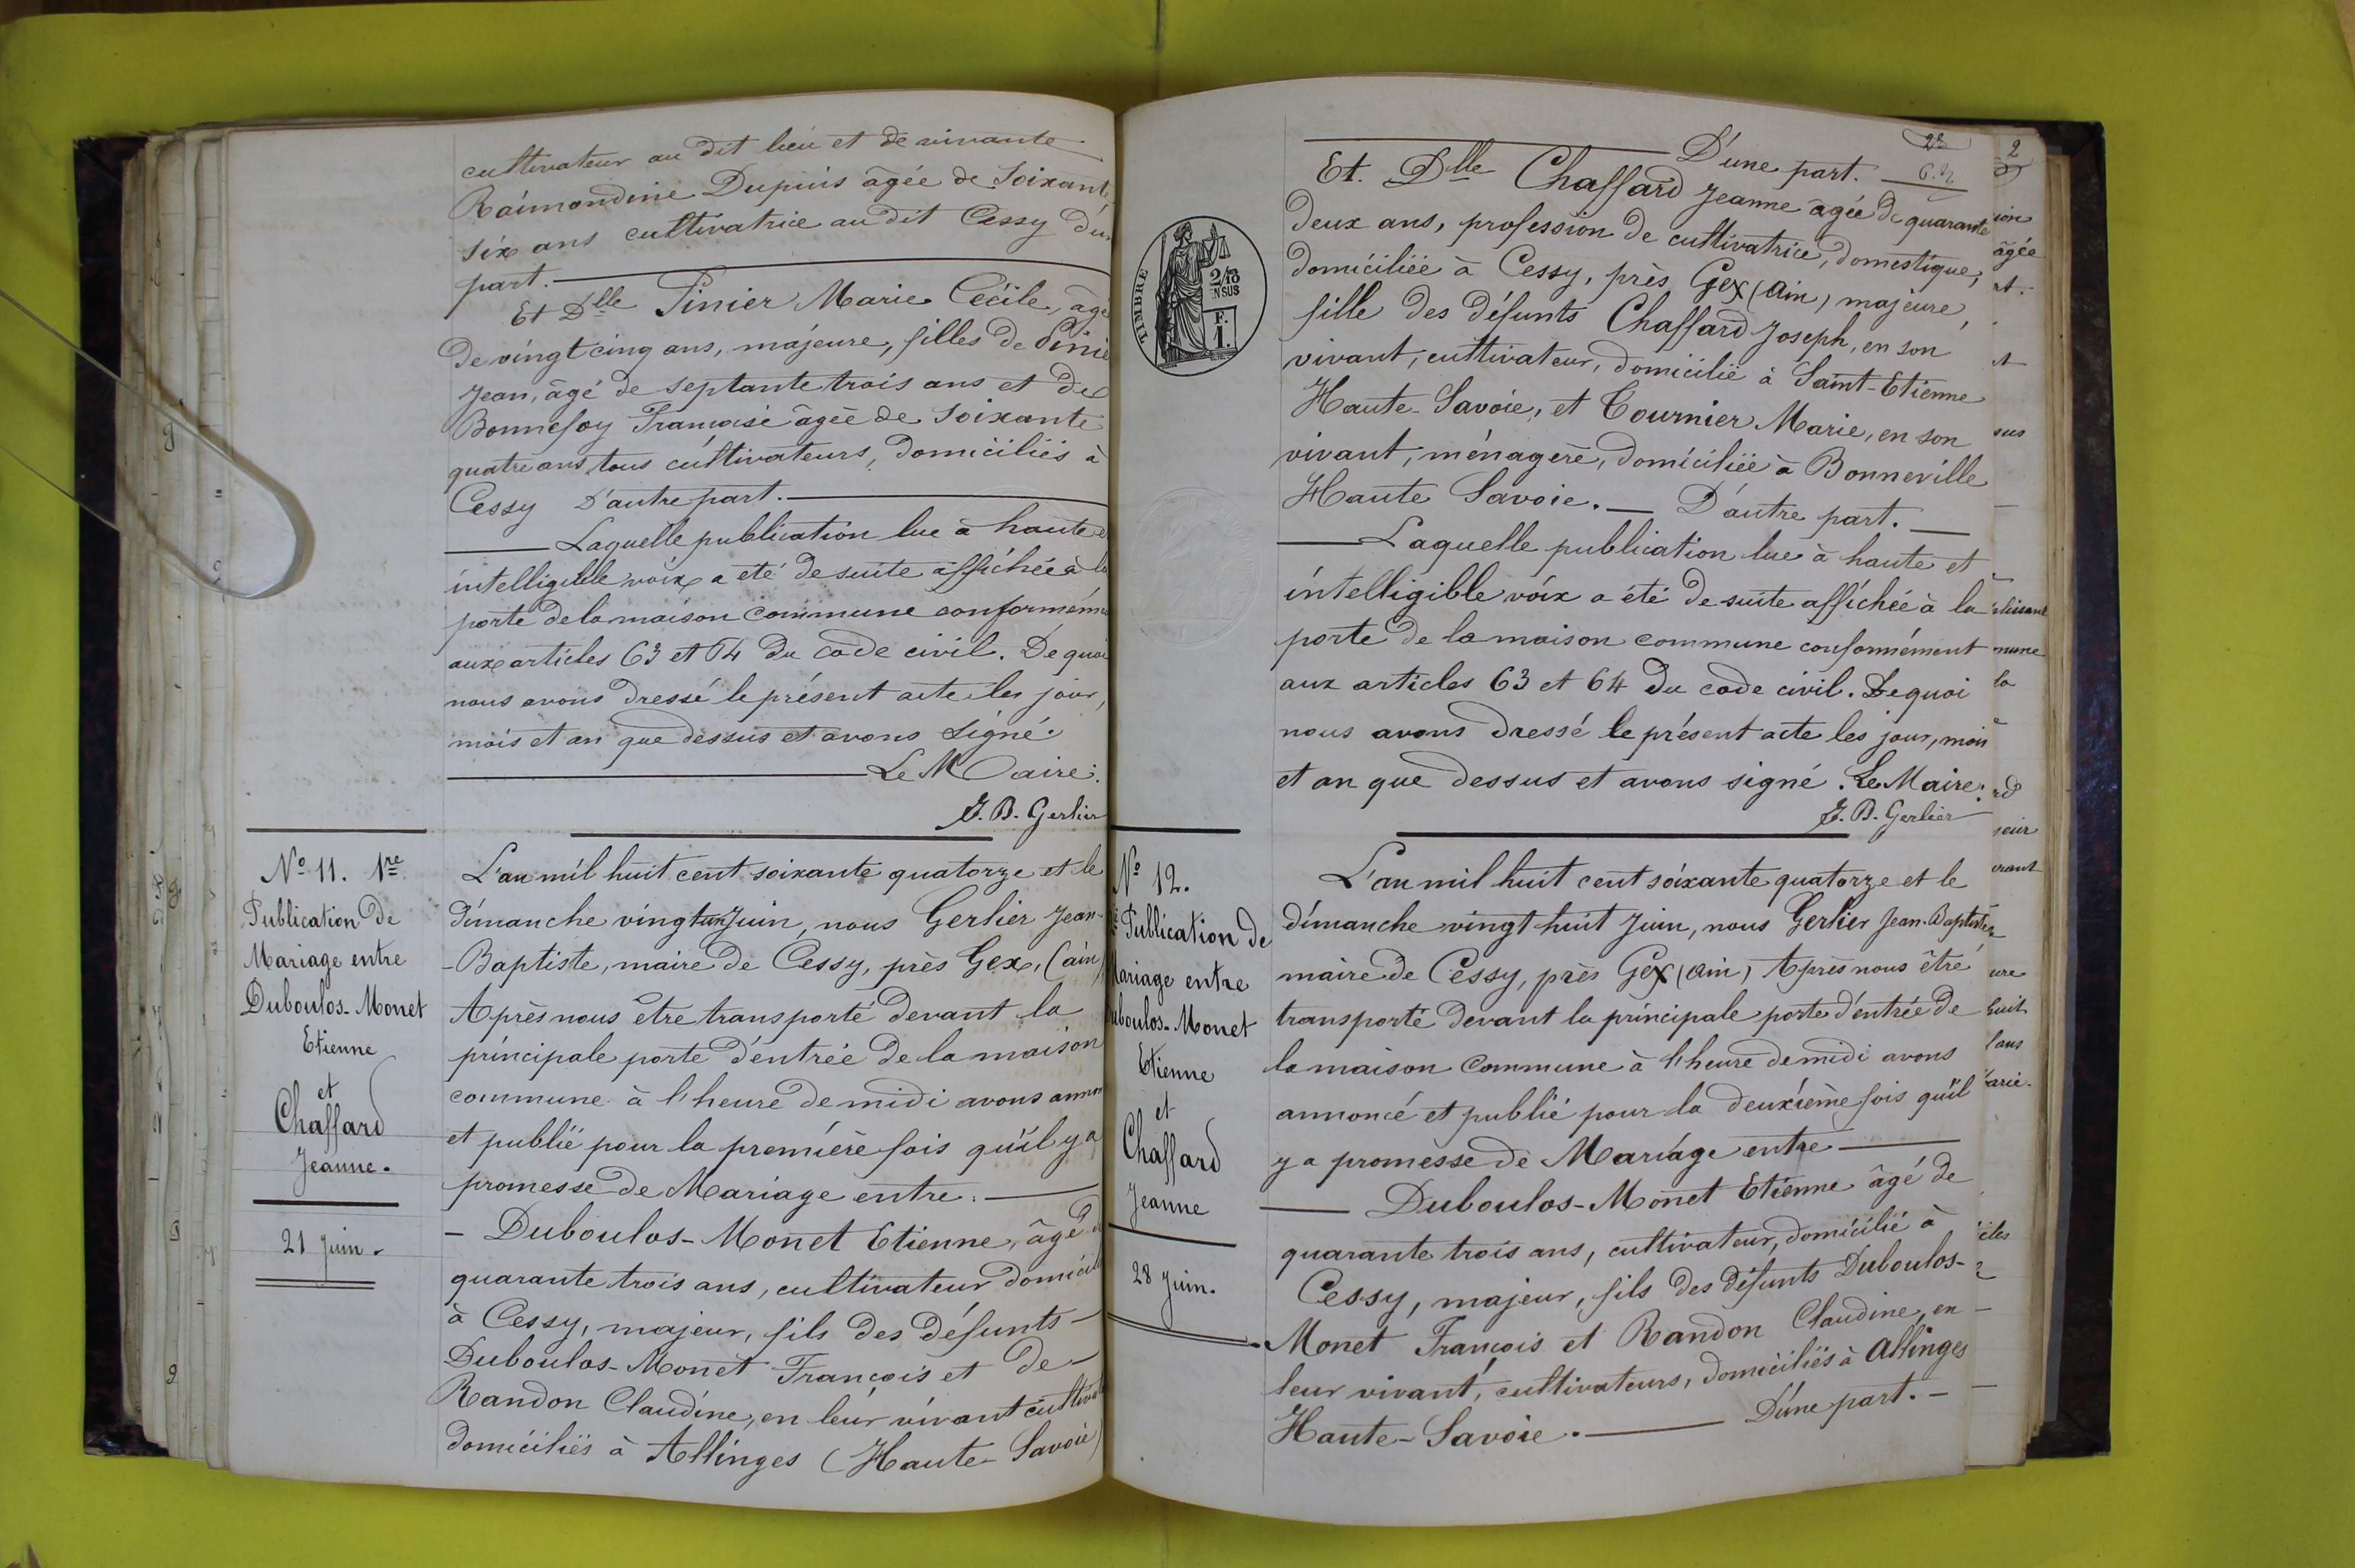 cultivateur au dit lieu et de vivante
Raimondine Dupuis âgée de Soixante
six ans cultivatrice au dit Cessy d'un
part.
Et Dlle Pinier Marie Cécile, âgé
de vingt cinq ans, majeure, filles de Pinie
Jean, âgé de septante trois ans et de
Bonnefoy Françoise âgée de Soixante
quatre ans, tous cultivateurs, domiciliés à
Cessy D'autre part.
Laquelle publication lue à haute e
intelligible voix a été de suite affichée à la
porte de la maison commune conformém
aux articles 63 et 64 du code civil. De quoi
nous avons dressé le présent acte les jour,
mois et an que dessus et avons signé.
Le Maire:
J. B. Gerlier
No 11. 1re
Publication de
Mariage entre
Duboulos-Monet
Etienne
et
Chaffard
Jeanne.
21 Juin.
L'an mil huit cent soixante quatorze et le
dimanche vingt un Juin, nous Gerlier Jean-
-Baptiste, maire de Cessy, près Gex, (ain)
Après nous être transporté devant la
principale porte d'entrée de la maison
commune à l'heure de midi avons annon
et publié pour la première fois qu'il y a
promesse de Mariage entre:
- Duboulos-Monet Etienne, âgé d
quarante trois ans, cultivateur domicili
à Cessy, majeur, fils des défunts -
Duboulos-Monet François et de -
Randon Claudine, en leur vivant cultiva
domiciliés à Allinges (Haute-Savoie)
D'une part.
Et. Dlle Chaffard Jeanne âgée de quarante
deux ans, profession de cultivatrice, domestique,
domiciliée à Cessy, près Gex (Ain) majeure,
fille des défunts Chaffard Joseph, en son
vivant, cultivateur, domicilié à Saint-Etienne
Haute-Savoie, et Tournier Marie, en son
vivant, ménagère, domiciliée à Bonneville
Haute Savoie. — D'autre part. —
Laquelle publication lue à haute et
intelligible voix a été de suite affichée à la
porte de la maison commune conformément
aux articles 63 et 64 du code civil. De quoi
nous avons dressé le présent acte les jour, mois
et an que dessus et avons signé. Le Maire:
J. B. Gerlier
TIMBRE
F.
1.
No 12.
Publication de
Mariage entre
uboulos-Monet
Etienne
et
Chaffard
Jeanne
28 Juin.
L'an mil huit cent soixante quatorze et le
dimanche vingt huit Juin, nous Gerlier Jean-Baptiste,
maire de Cessy, près Gex (Ain) Après nous être
transporté devant la principale porte d'entrée de
la maison commune à l'heure de midi avons
annoncé et publié pour la deuxième fois qu'il
y a promesse de Mariage entre
Duboulos-Monet Etienne âgé de
quarante trois ans, cultivateur, domicilié à
Cessy, majeur, fils des défunts Duboulos-
Monet François et Randon Claudine, en
leur vivant, cultivateurs, domiciliés à Allinges
Haute-Savoie. — D'une part. —